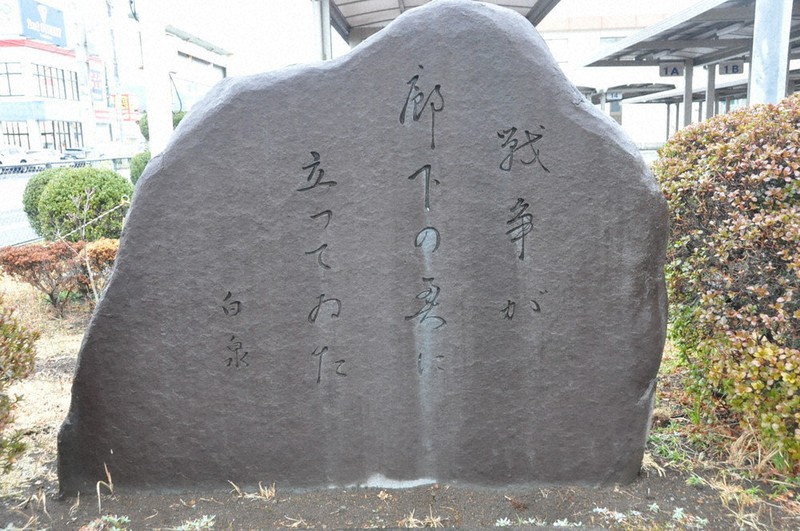 戦争が
廊下の奥に
立つてゐた
白泉
1A
1B